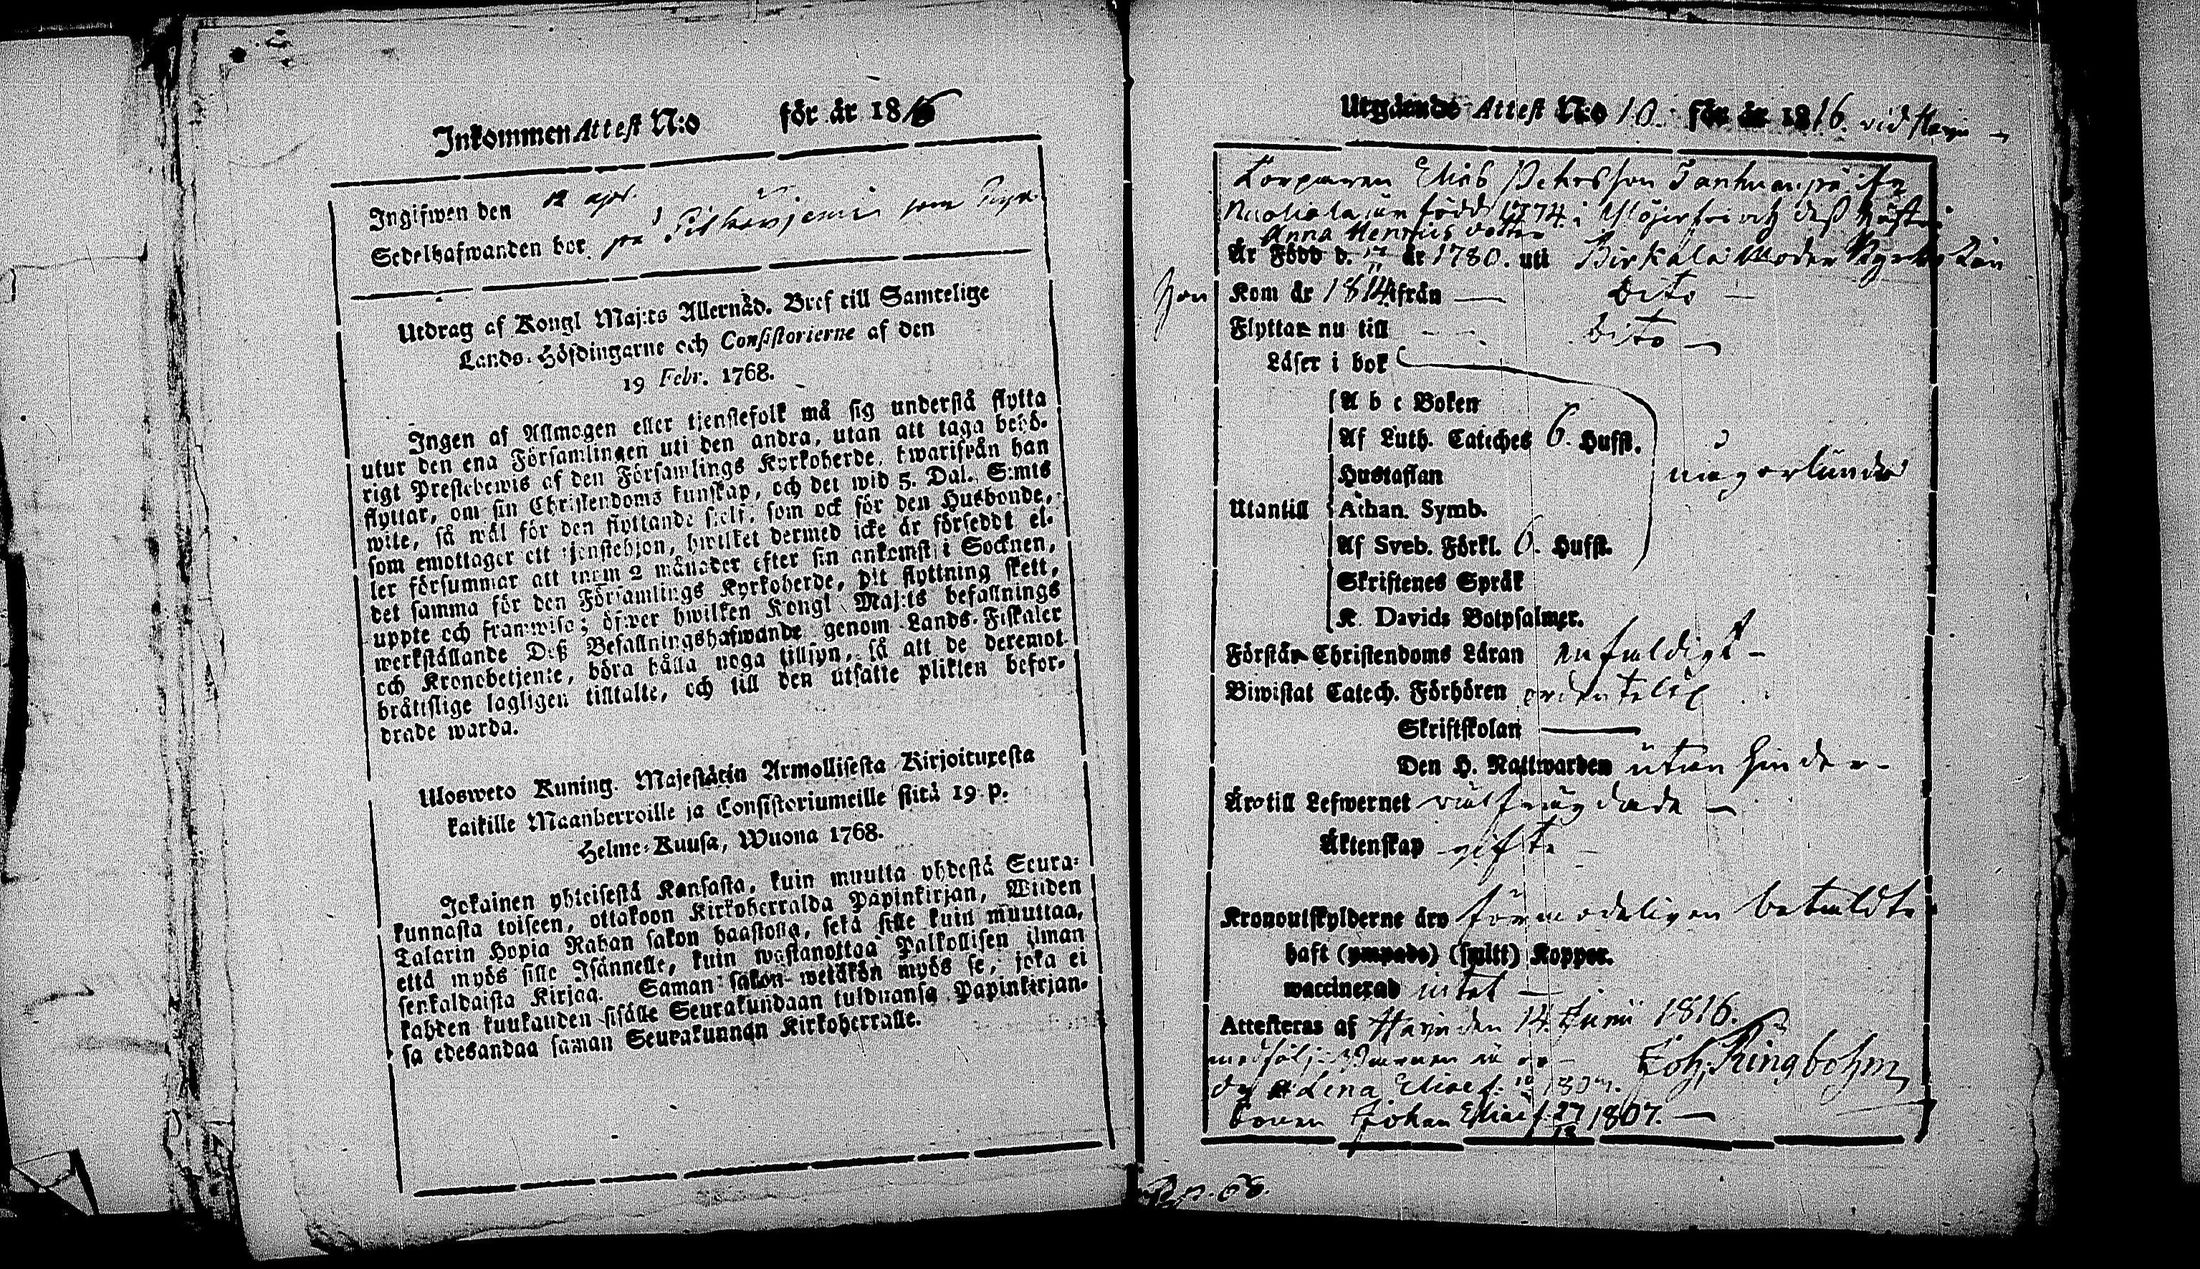 Inkommen Attest N:o för år 1816
Ingifwen den 12 apr.
Sedelhafwanden bor på som
Utdrag af Kongl Maj:ts Allernåd. Bref till Samtelige
Lands-Höfdingarne och Consistorierne af den
19 Febr. 1768.
Ingen af Allmogen eller tjenstefolk må sig understå flytta
utur den ena Församlingen uti den andra, utan att taga behö-
rigt Prestebewis af den Församlings Kyrkoherde, hwarifrån han
flyttar, om sin Christendoms kunskap, och det wid 5. Dal. S:mts
wite, så wäl för den flyttande sielf, som ock för den Husbonde,
som emottager ett tjenstehjon, hwilket dermed icke är förseddt el-
ler försummar att inom 2 månader efter sin ankomst i Socknen,
det samma för den Församlings Kyrkoherde, dit flyttning skett,
uppte och framwisa; öfwer hwilken Kongl Maj:ts befallnings
werkställande Deß Befallningshafwande genom Lands-Fiskaler
och Kronobetjente, böra hålla noga tillsyn, så att de deremot
bråtislige lagligen tilltalte, och till den utsatte plikten befor-
drade warda.
Ulosweto Kuning. Majestätin Armollisesta Kirjoituxesta
kaikille Maanherroille ja Consistoriumeille siitä 19 p.
Helme-Kuusa, Wuona 1768.
Jokainen yhteisestä Kansasta, kuin muutta yhdestä Seura-
kunnasta toiseen, ottakoon Kirkoherralda Papinkirjan, Wiiden
Talarin Hopia Rahan sakon haastolla, sekä sille kuin muuttaa,
että myös sille Isännelle, kuin wastanottaa Palkollisen ilman
senkaldaista Kirjaa. Saman sakon wetäkön myös se, joka ei
kahden kuukauden sisälle Seurakundaan tulduansa Papinkirjan-
sa edesandaa saman Seurakunnan Kirkoherralle.
Utgående Attest N:o 10. för år 1816. vid
Torparen Elias Petersson på
född 1774 i
Anna Henrics dotter
Är Född d. 17/11 år 1780. uti Birkala Moder Kyrko
hon Kom år 1814 från — Dito —
Flyttar nu till — Dito —
Läser i bok
A b c Boken
Af Luth. Cateches 6. Hufst.
någorlunda
Hustaflan
Utantill Athan. Symb.
Af Sveb. Förkl. 6. Hufst.
Skriftenes Språk
K. Davids Botpsalmer.
Förstår Christendoms Läran enfaldigt —
Biwistat Catech. Förhören ordentelig
Skriftskolan —
Den H. Nattwarden utan hinder —
Äro till Lefwernet wälfrägdade —
Äktenskap gifte —
Kronoutskylderne äro förmodeligen betaldte
haft (ympade) (smitt) Koppor.
waccinerad intet —
Attesteras af den 14. Junii 1816.
medfölj. Joh. Ringbohm
Lina Eliaed. 1807.
Sonen Johan Elias s. 27/12 1807. —